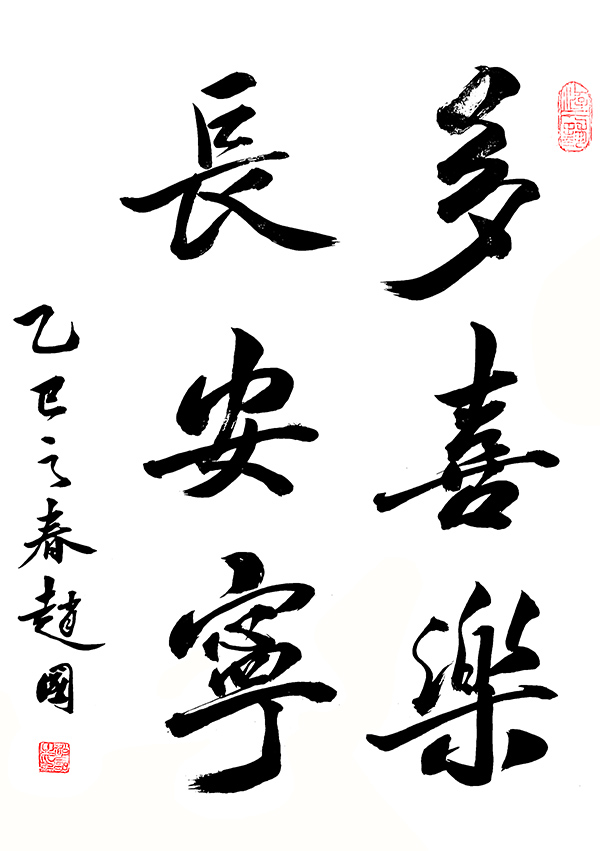 多喜樂
長安寧
乙巳之春趙國